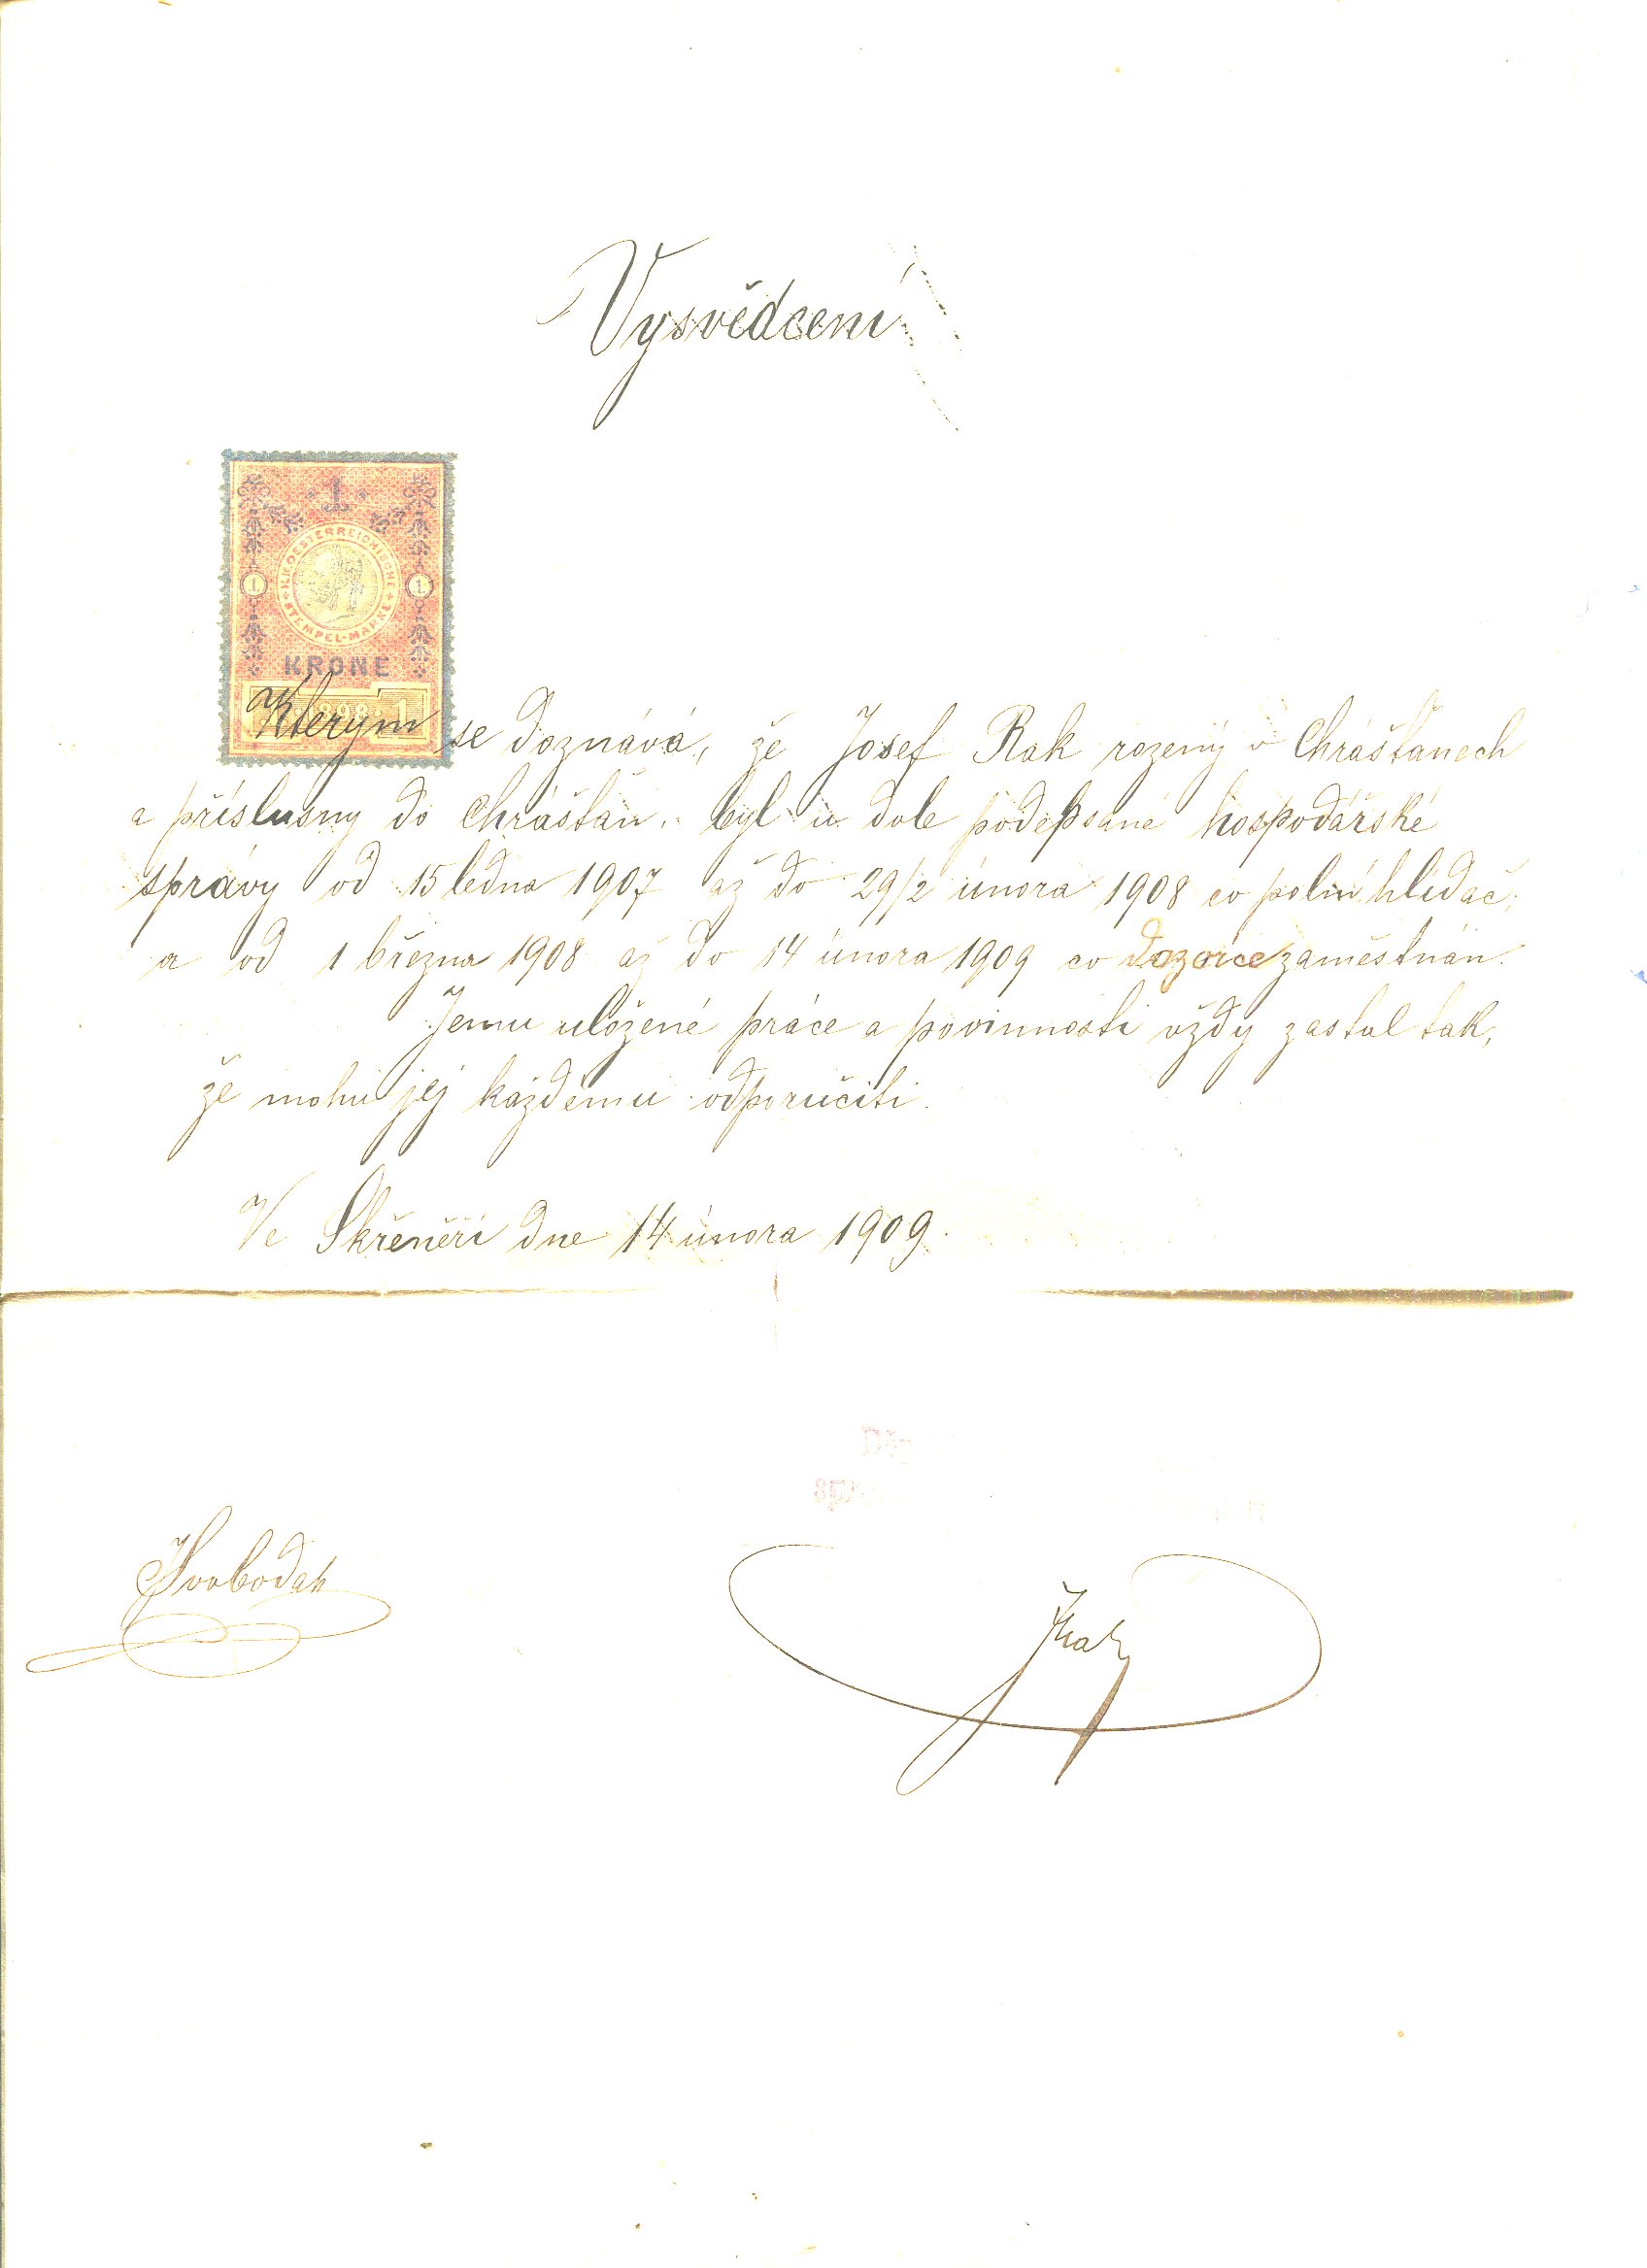 Vysvědčení
1
K.K. OESTERREICHISCHE STEMPEL-MARKE
1 1
KRONE
1 1898 1
Kterým se doznává, že Josef Rak rozený v Chrášťanech
a příslušny do Chrášťan. byl u dole podepsané hospodářské
správy od 15 ledna 1907 až do 29/2 února 1908 co polní hlídač,
a od 1 března 1908 až do 14 února 1909 co dozorce zaměstnán.
Jemu uložené práce a povinnosti vždy zastal tak,
že mohu jej každému odporučiti.
Ve Skřeněři dne 14 února 1909.
Svoboda